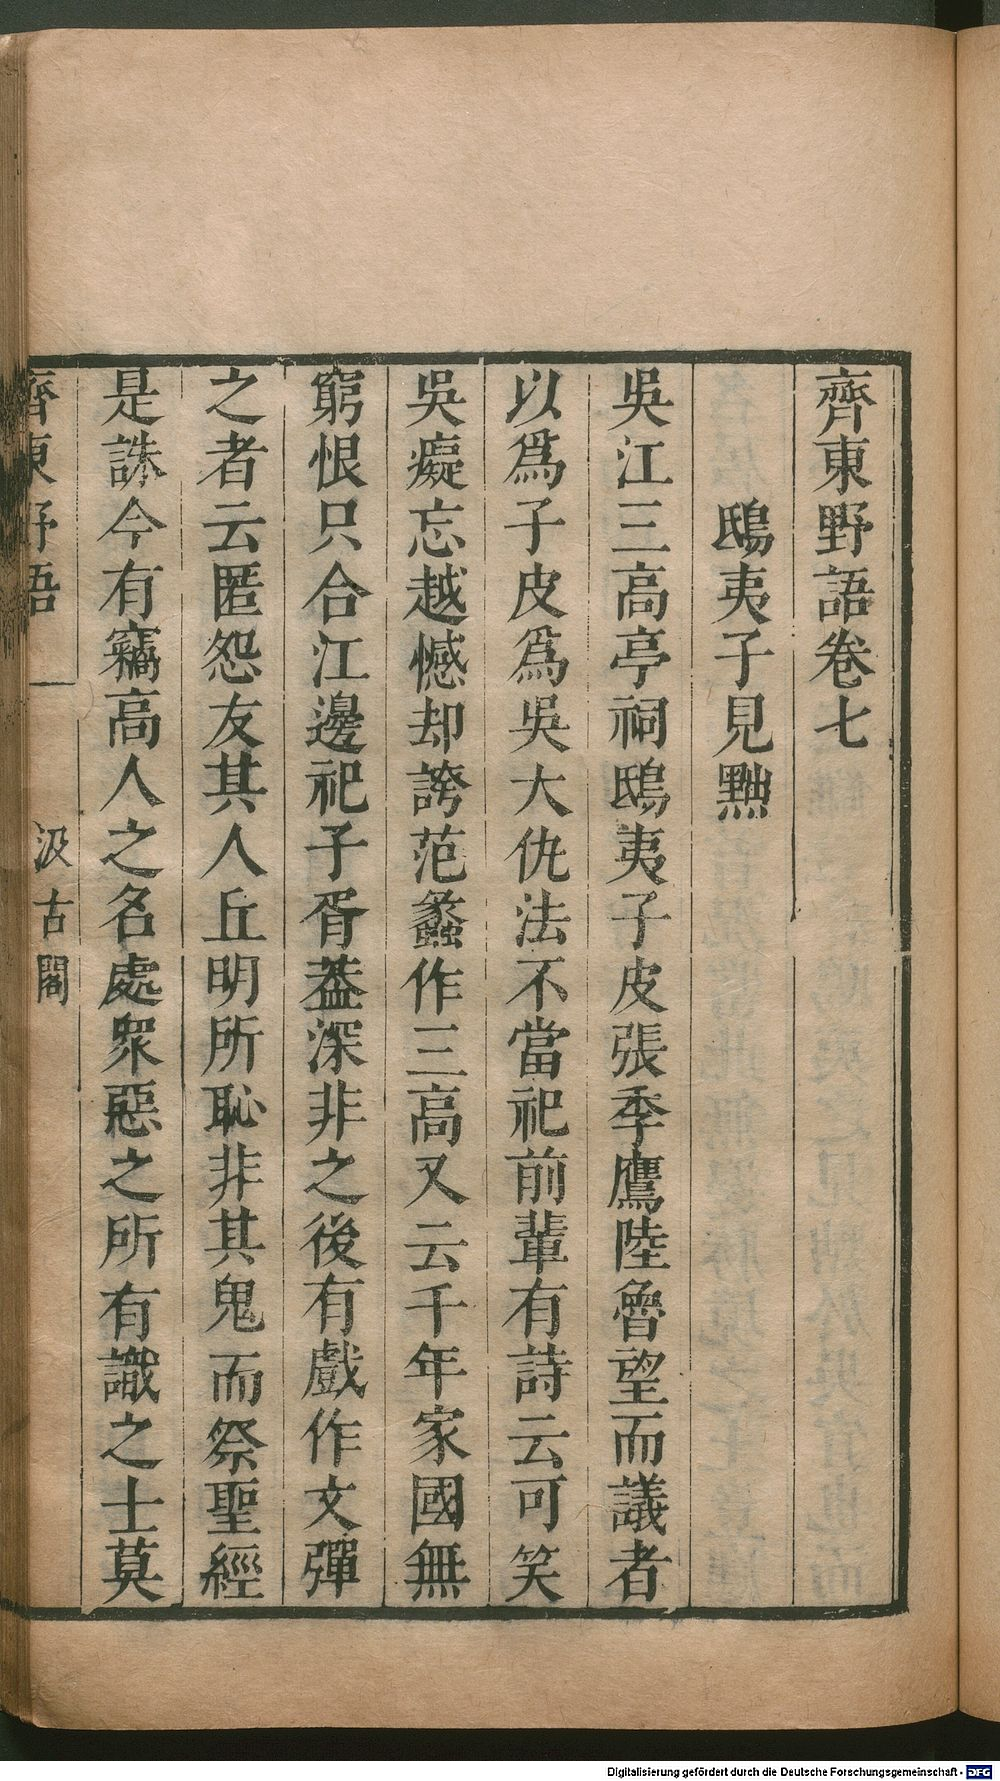 齊東野語卷七
鴟夷子見黜
吳江三高亭祠鴟夷子皮張季鷹陸魯望而議者
以爲子皮爲吳大仇法不當祀前輩有詩云可笑
吳癡忘越憾却誇范蠡作三高又云千年家國無
窮恨只合江邊祀子胥葢深非之後有戲作文彈
之者云匿怨友其人丘明所恥非其鬼而祭聖經
是誅今有竊高人之名處衆惡之所有識之士莫
齊東野語 一 汲古閣
Digitalisierung gefördert durch die Deutsche Forschungsgemeinschaft - DFG